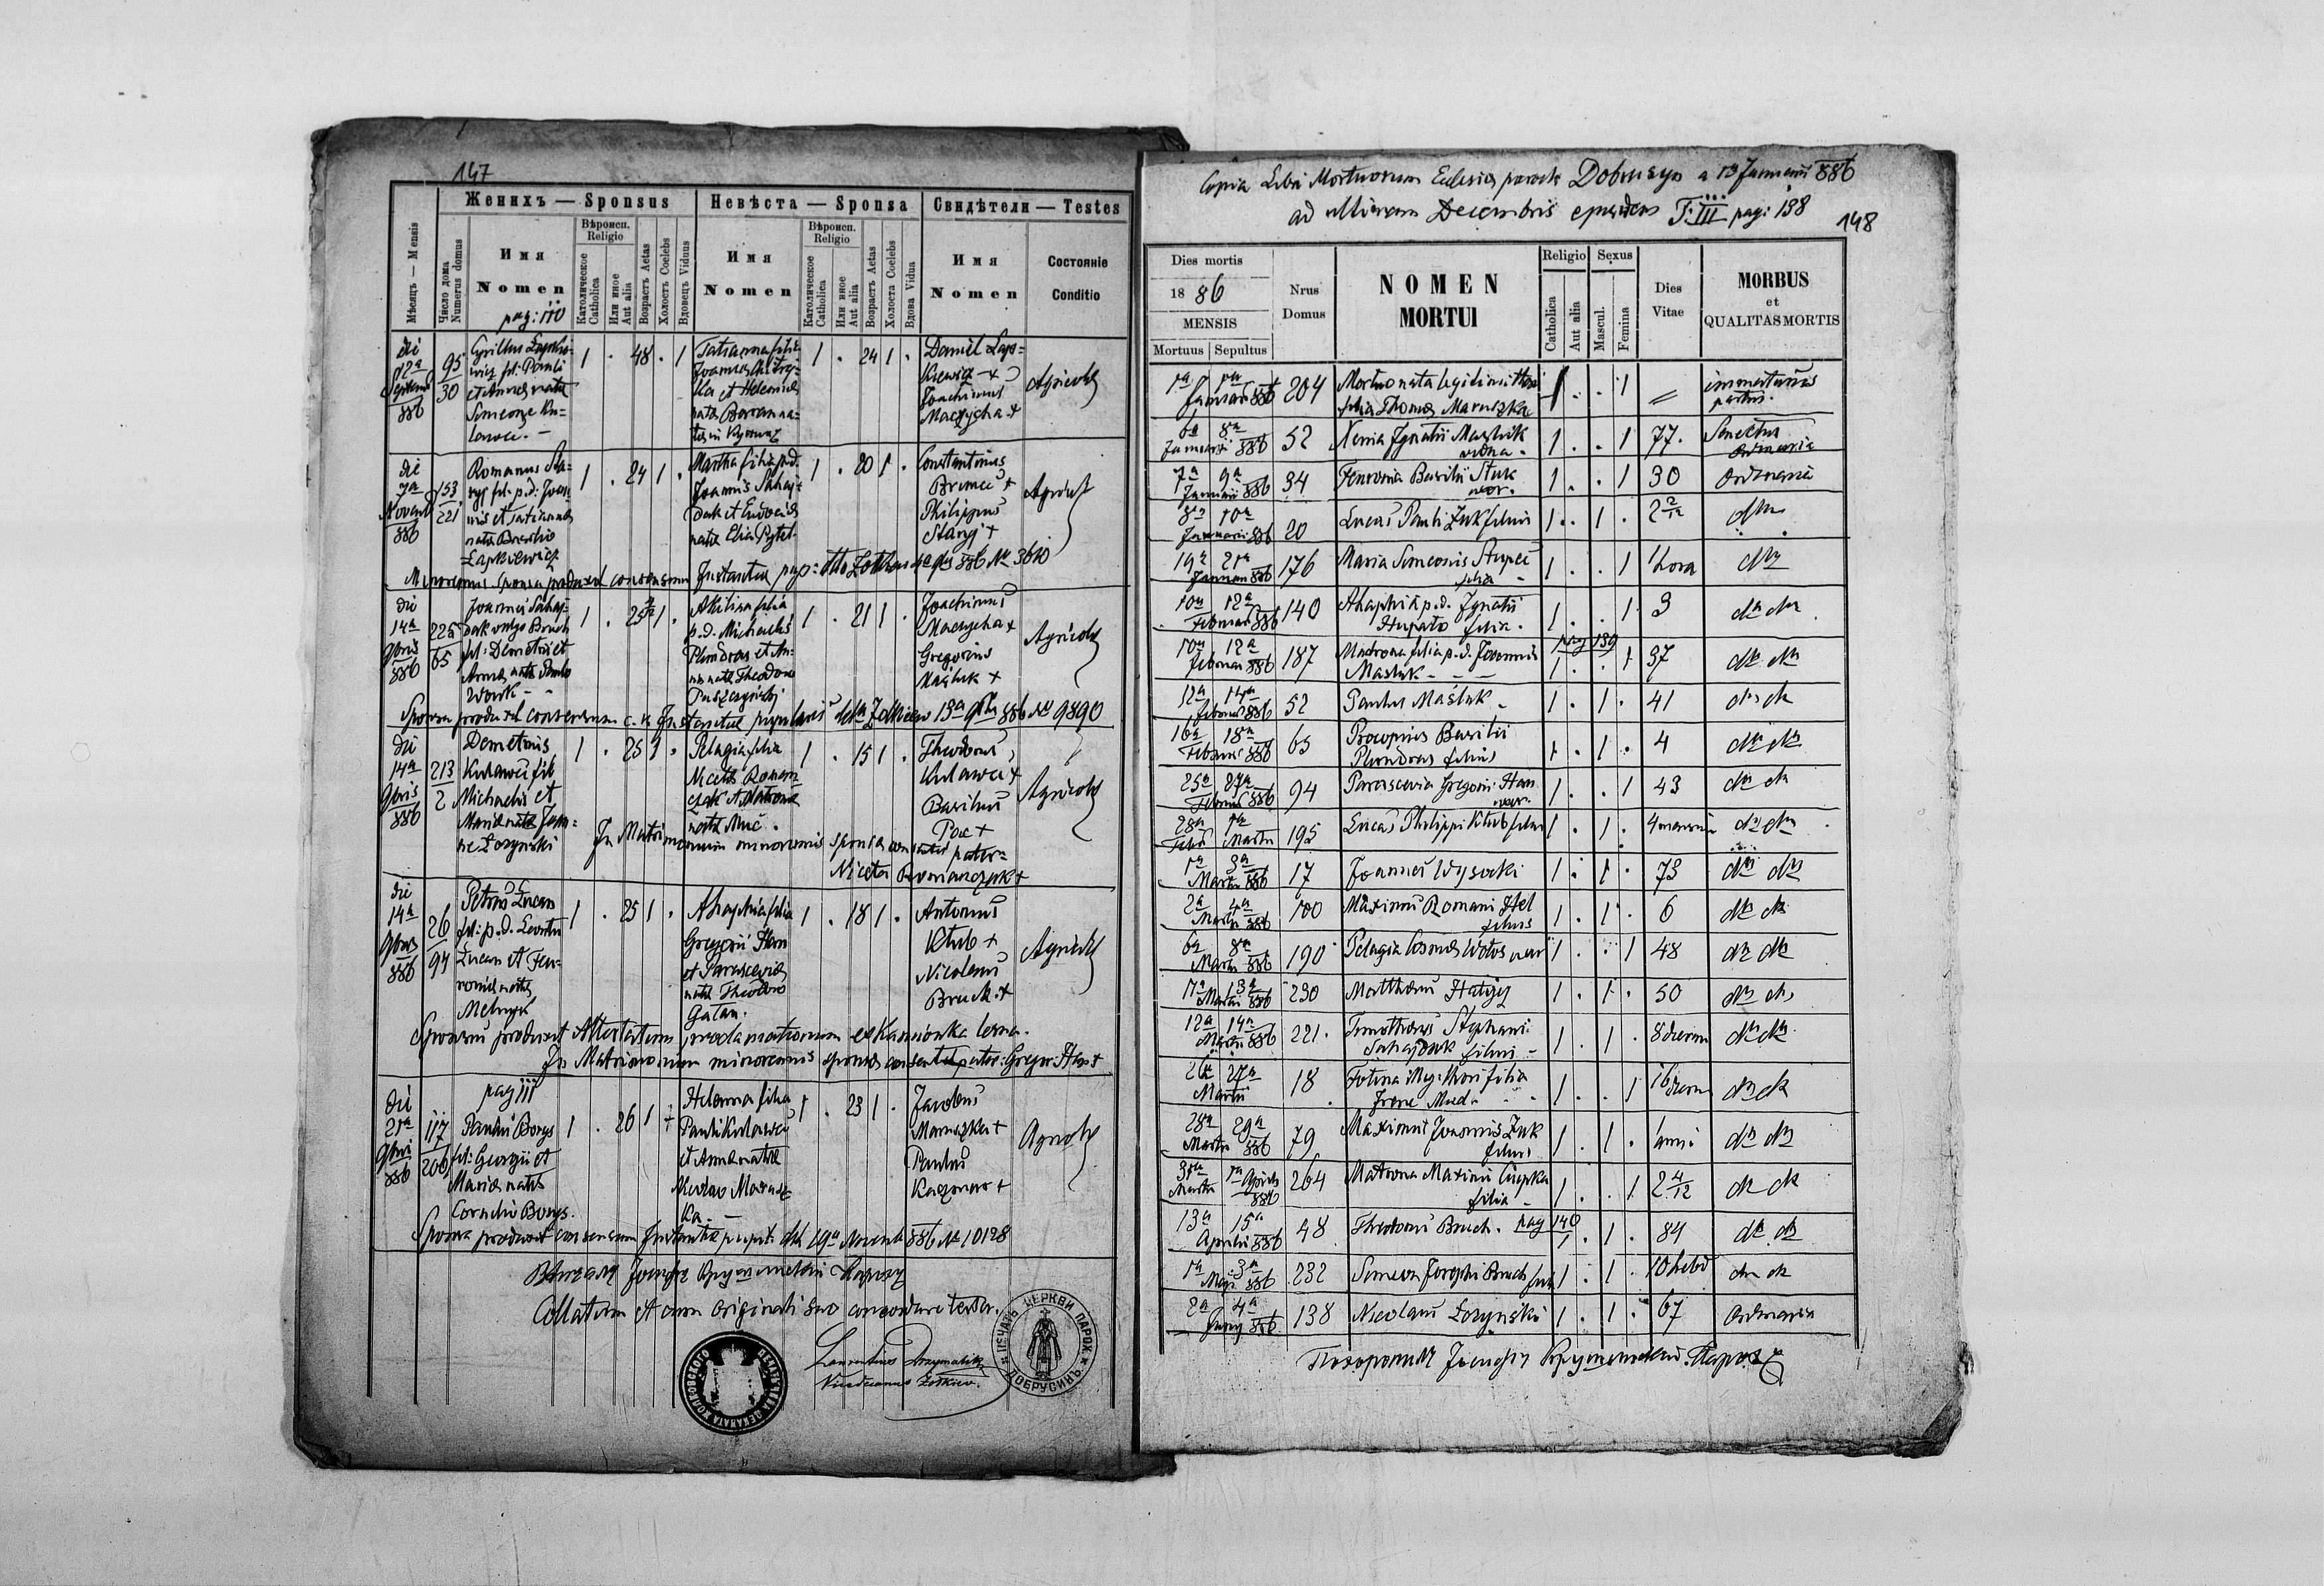 147
Женихъ — Sponsus
Невѣста — Sponsa
Свидѣтели — Testes
Мѣсяцъ — Mensis
Число дома
Numerus domus
Имя
Nomen
pag: 110
Вѣроисп.
Religio
Католическое
Catholica
Или иное
Aut alia
Возрастъ Aetas
Холостъ Coelebs
Вдовецъ Viduus
Имя
Nomen
Вѣроисп.
Religio
Католическое
Catholica
Или иное
Aut alia
Возрастъ Aetas
Холоста Coelebs
Вдова Vidua
Имя
Nomen
Состояніе
Conditio
die
12a
886
95
30
Cyrillus
fil: Pauli
et Annae natae
Simeone Ku-
lawce. —
1 . 48 . 1
Tatianna filia
Joannis
ka et Helenae
natae
1 . 24 1 .
Daniel Lap=
kiewicz +
Joachimus
Maczycha +
Agricolae
die
7a
Novemb
886
153
221
Romanus Sta-
ryj fil. p.d. Joan-
nis et Tatiannae
natae Basilio
Łapkiewicz
1 . 24 1 .
Martha filia p.d.
Joannis Sahaj-
dak et Eudociae
natae Elia Pytel.
1 . 20 1 .
Constantinus
+
Philippus
Staryj +
Minorennis sponsa produxit consensum Instantiae pup: No 3610
die
14a
9bris
886
225
65
Joannes Sahaj-
dak vulgo Bruch
fil: Demetrii et
Annae natae Paulo
Wowk - -
1 . 1 .
Akilina filia
p.d. Michaelis
Plondras et An-
nae natae Theodoro
Puszczyński
1 . 21 1 .
Joachimus
Maczycha +
Gregorius
Maśluk +
Agricolae
Sponsa produxit consensum c. k. Instantiae pupilaris Zołkiew 13a 9bris 886 No 9890
die
14a
9bris
886
213
2
Demetrius
Kulawec fil
Michaelis et
Mariae natae Joan-
ne Łozynski
1 . 25 1 .
Pelagia filia
Nicetae Roman-
czuk et Matronae
natae Muć.
1 . 15 1 .
Theodorus
Kulawec +
Basilius
Pac +
Agricolae
In Matrimonium minorennis sponsae consentit pater=
Niceta Romanczuk +
die
14a
9bris
886
26
94
Petrus Łucan
fil: p.d. Leontii
Łucan et Fev-
roniae natae
Melnyk
1 . 25 1 .
Ahaphia filia
Gregorii Han
et Parasceviae
natae Theodoro
Gałan.
1 . 18 1 .
Antonius
Kłub +
Nicolaus
Bruch. +
Agricolae
Sponsus produxit Attestatum proclamationum ex Kamionka lesna.
In Matrimonium minorennis sponsae consentit pater: Gregor: Han +
pag 111
die
21a
9bris
886
117
206
Paulus Borys
fil: Georgii et
Mariae natae
Cornelio Borys.
1 . 26 1 .
Helenna filia
Pauli Kulawec
et Annae natae
Nicolao Marusz-
ka. —
1 . 23 1 .
Jacobus
Maruszka +
Paulus
+
Agricolae
Sponsa produxit consensum Instantiae pupil: 19a Novemb 886 No 10128
Вѣнчалъ Іосифъ Парохъ
Collatum et cum originali suo concordare testor.
Laurentius
Vicedecanus Zołkiew.
ПЕЧАТЬ ЦЕРКВИ ПАРОХ. ДОБРУСИНЪ
Copia Libri Mortuorum Ecclesiae paroch Dobrusyn a 1a Januarii 886
ad ultimam Decembris ejusdem T: III pag: 138
148
Dies mortis
1886
MENSIS
Mortuus
Sepultus
Nrus
Domus
NOMEN
MORTUI
Religio
Catholica
Aut alia
Sexus
Mascul.
Femina
Dies
Vitae
MORBUS
et
QUALITAS MORTIS
1a 1a Januarii 886 204 Mortuo nata legitimi thori filia Thomae Maruszka 1 . . 1 immaturus partus.
6a 8a Januarii 886 52 Xenia Ignatii Maśluk vidua. 1 . . 1 77. Senectus ordinaria
7a 9a Januarii 886 34 Fenronia Basilii Stuk uxor. 1 . . 1 30 ordinaria
8a 10a Januarii 886 20 Lucas Pauli Żuk filius 1 . 1 . 2 2/12 dto
19a 21a Januarii 886 176 Maria Simeonis Stupeć filia 1 . . 1 1 hora dto
10a 12a Februarii 886 140 Ahaphia p.d. Ignatii Hupało filia. 1 . . 1 3 dto dto
pag 139
10a 12a Februarii 886 187 Matrona filia p.d. Joannis Maśluk - - - 1 . . 1 37 dto dto
12a 14a Februarii 886 52 Paulus Maśluk 1 . 1 . 41 dto dto
16a 18a Februarii 886 65 Procopius Basilii Plondras filius 1 . 1 . 4 dto dto
25a 27a Februarii 886 94 Parascevia Gregorii Han uxor. 1 . . 1 43 dto dto
28a Feb 1a Martii 195 Lucas Philippi Kłub filius 1 . 1 . 4 mensium dto dto
1a 3a Martii 886 17 Joannes Wysocki 1 . 1 . 73 dto dto
2a 4a Martii 886 100 Maximus Romani Hel filius 1 . 1 . 6 dto dto
6a 8a Martii 886 190 Pelagia Cosmae Wołos uxor 1 . . 1 48 dto dto
11a 13a Martii 886 230 Matthaeus Hałyj 1 . 1 . 50 dto dto
12a 14a Martii 886 221. Timotheus Stephani Sahajdak filius - 1 . 1 . 8 dierum dto dto
26a 27a Martii 18 Fotina illeg: thori filia Irene Mud 1 . . 1 16 dierum dto dto
28a 29a Martii 886 79 Maximus Joannis Żuk filius 1 . 1 . 1 anni dto dto
31a Martii 1a Aprilis 886 264 Matrona Maximi Ciupka filia - 1 . . 1 2 4/12 dto dto
13a 15a Aprilis 886 48 Theodorus Bruch. pag 140 1 . 1 . 84 dto dto
1a 3a Maji 886 232 Simeon Josephi Bruch filius 1 . 1 . 10 hebd dto dto
2a 4a Junij 886 138 Nicolaus Łozyński 1 . 1 . 67 ordinaria
Похоронилъ Іосифъ Парохъ